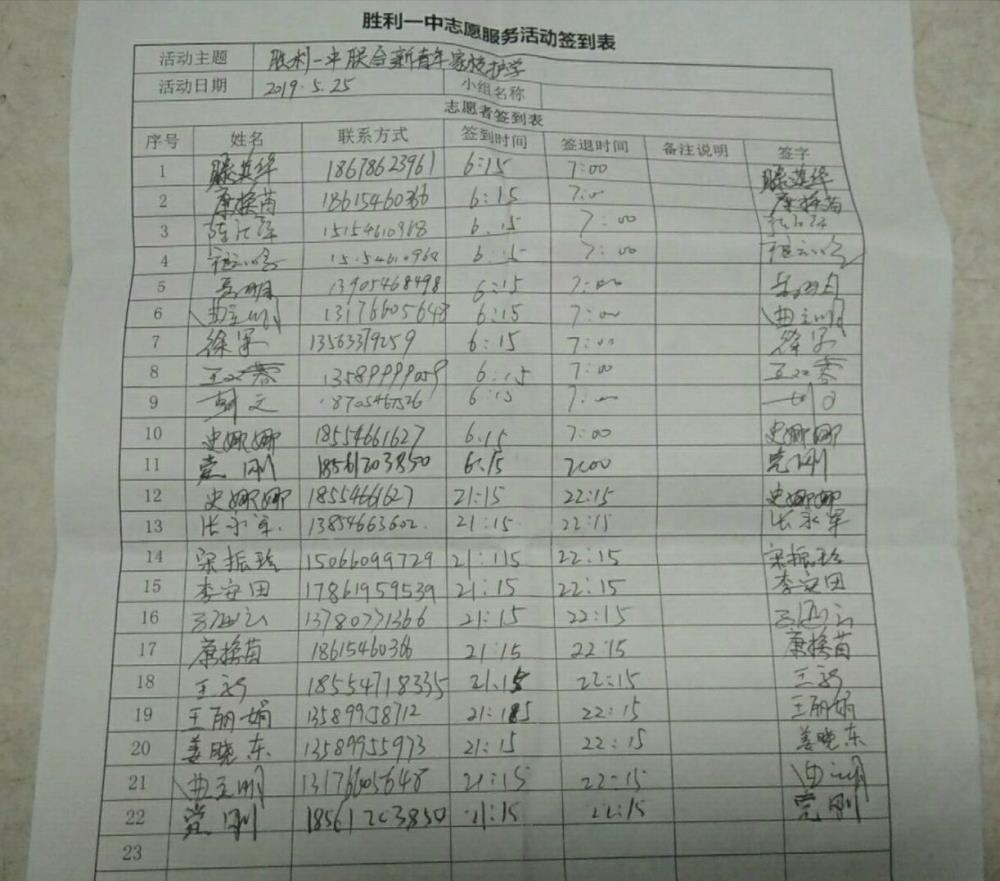 胜利一中志愿服务活动签到表
活动主题 胜利一中联合新青年家校护学
活动日期 2019.5.25 小组名称
志愿者签到表
序号 姓名 联系方式 签到时间 签退时间 备注说明 签字
1 滕英华 18678623961 6:15 7:00 滕英华
2 康换苗 18615460366 6:15 7:00 康换苗
3 15154610968 6.15 7:00
4 6:15 7:00
5 13905468498 6:15 7:00
6 曲立明 13176605648 6:15 7:00 曲立明
7 徐军 13563379259 6:15 7:00 徐军
8 13589999059 6:15 7:00
9 6:15 7:00
10 史娜娜 18554661627 6.15 7:00 史娜娜
11 党刚 18561203850 6:15 7:00 党刚
12 史娜娜 18554661627 21:15 22:15 史娜娜
13 张永军 13854663602. 21:15 22:15 张永军
14 宋振玲 15066099729 21:115 22:15 宋振玲
15 李安田 17861959539 21:15 22:15 李安田
16 13780771366 21:15 22:15
17 康换苗 18615460366 21:15 22:15 康换苗
18 18554718335 21.15 22:15
19 王丽娟 13589958712 21:15 22:15 王丽娟
20 姜晓东 13589955973 21:15 22:15 姜晓东
21 曲立明 13176605648 21:15 22:15 曲立明
22 党刚 18561203850 21:15 22:15 党刚
23